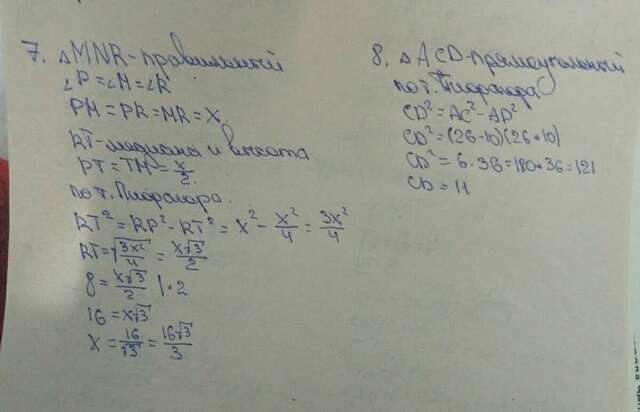 7. △MNR - правильный
∠P = ∠M = ∠R
PM = PR = MR = X
RT - медиана и высота
PT = TM = x/2
по т. Пифагора.
RT² = RP² - RT² = x² - x²/4 = 3x²/4
RT = √(3x²/4) = x√3/2
8 = x√3/2 | · 2
16 = x√3
X = 16/√3 = 16√3/3
8. △ACD - прямоугольный
по т. Пифагора
CD² = AC² - AD²
CD² = (26-10)(26+10)
CD² = 6·36 = 180·36 = 121
CD = 11